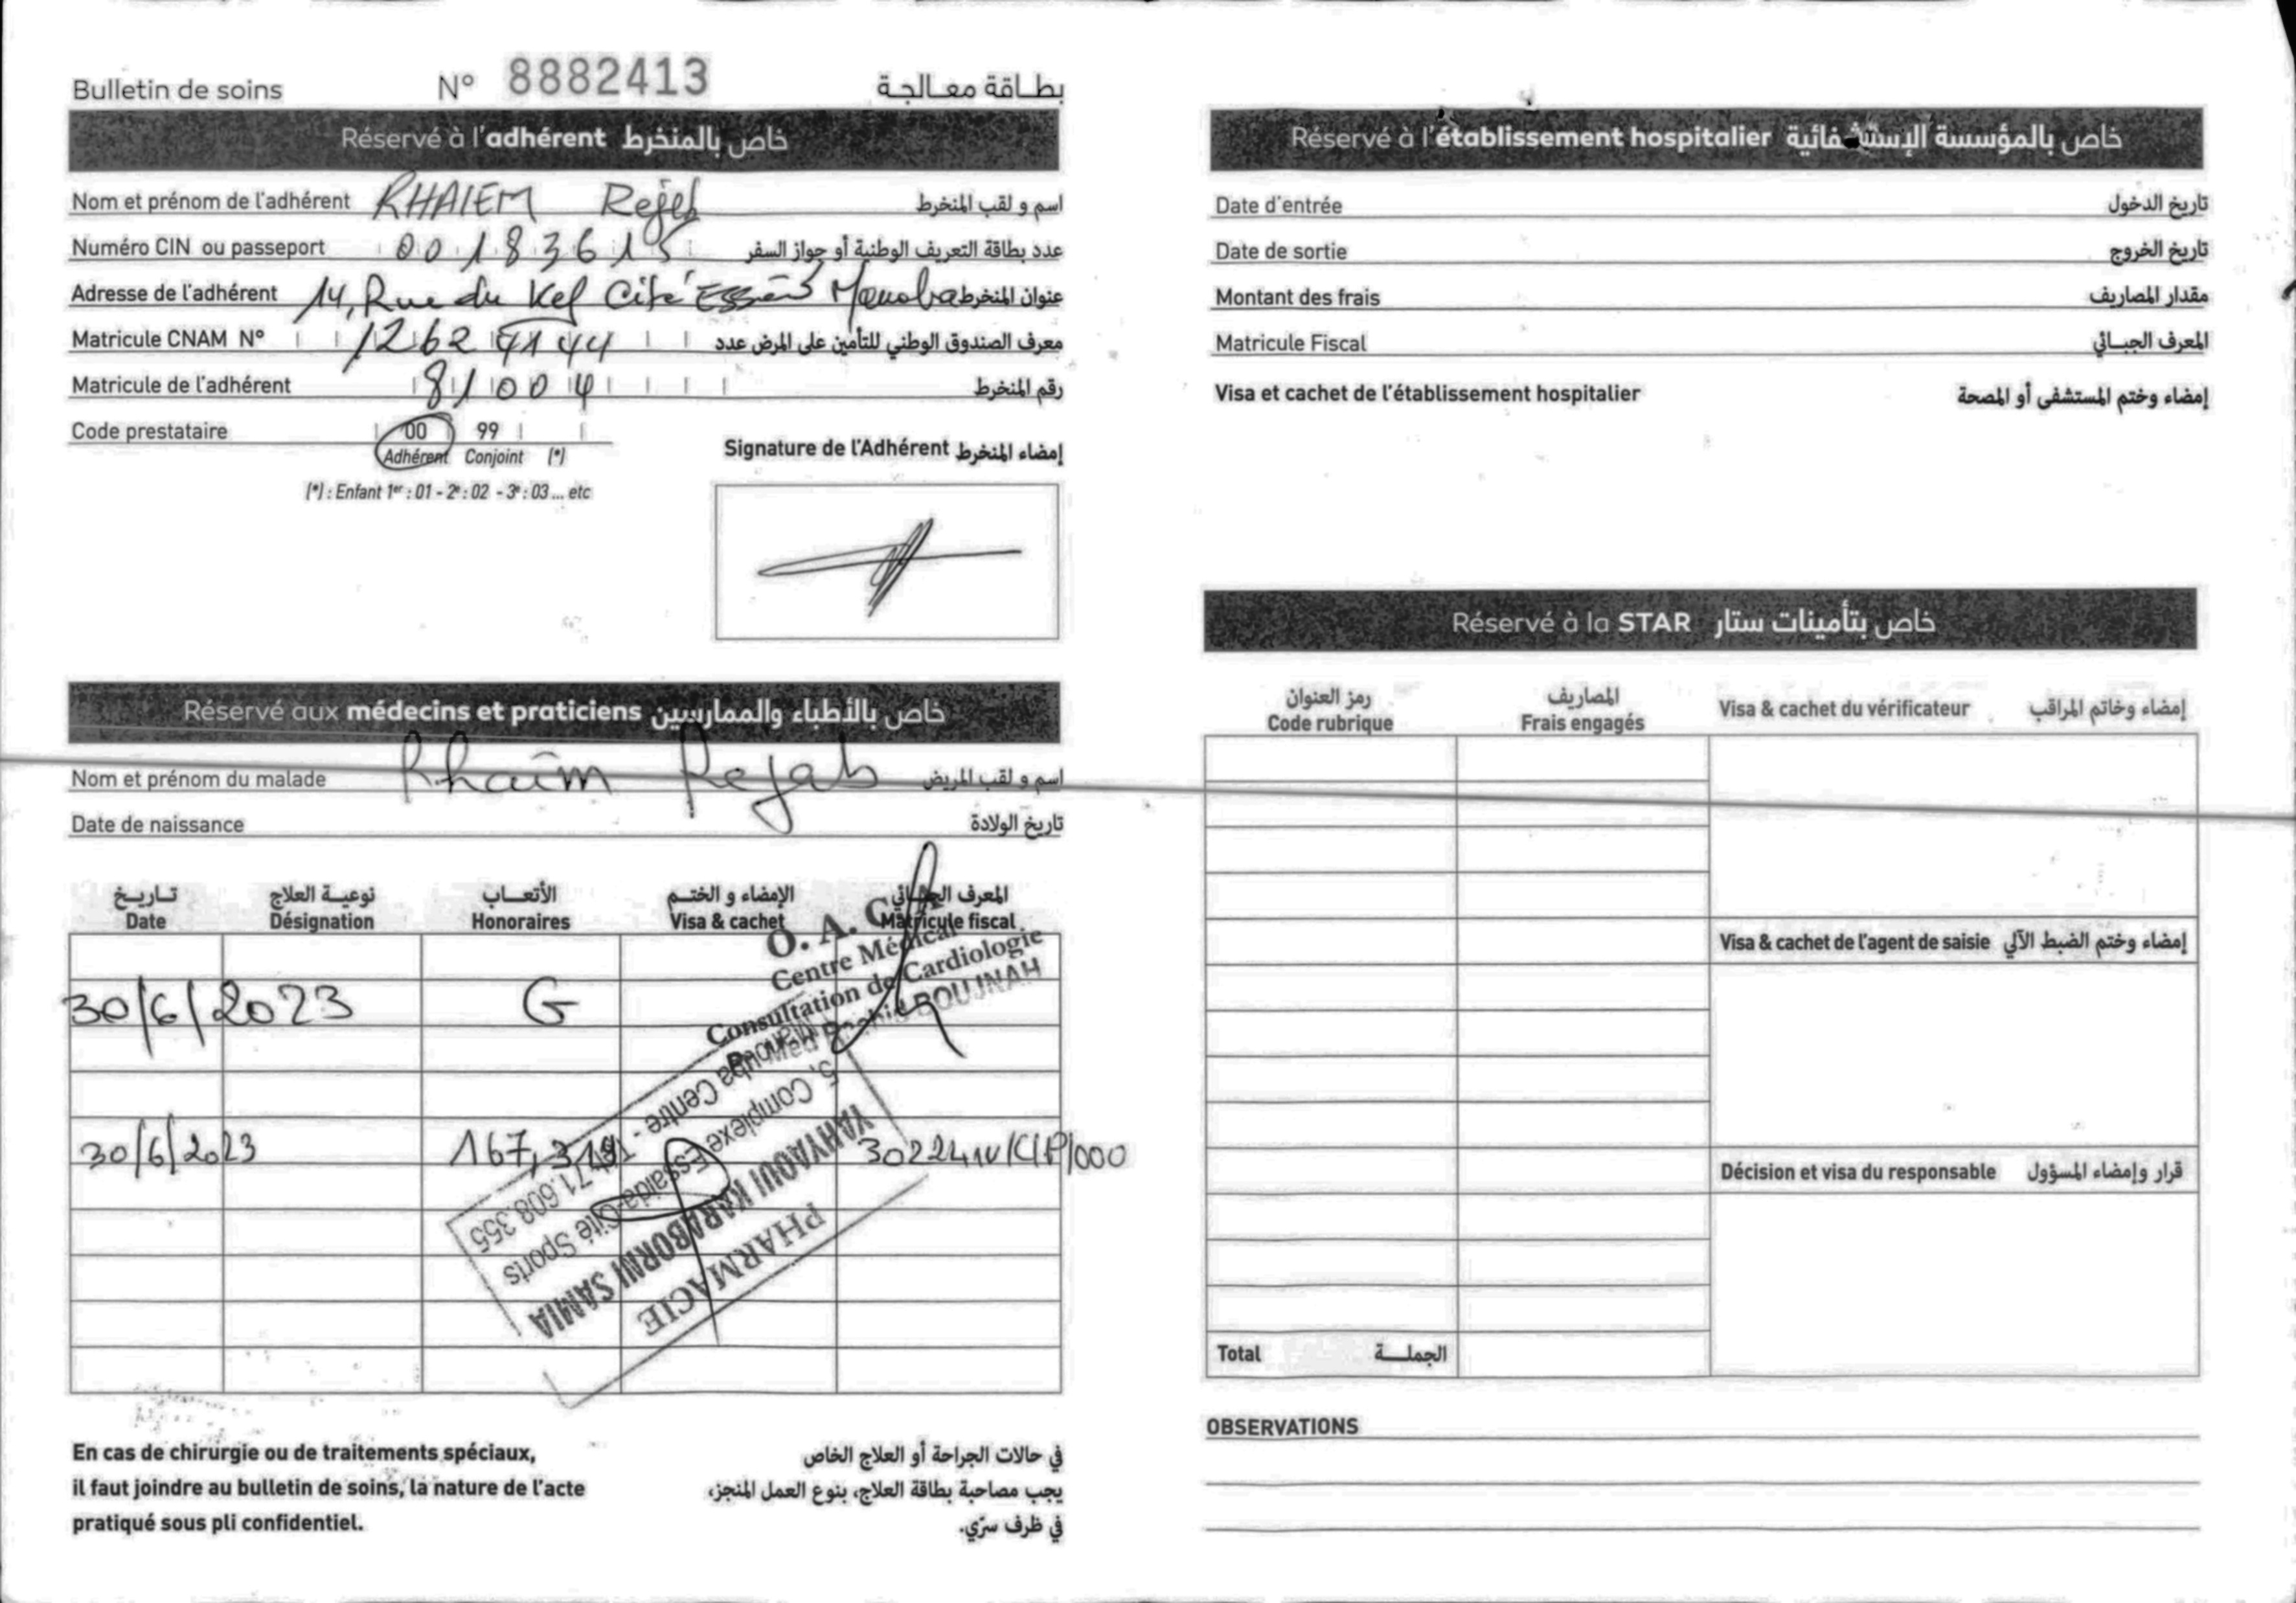 Bulletin de soins N° 8882413 بطاقة معالجة
Réservé à l'adhérent خاص بالمنخرط
Nom et prénom de l'adhérent KHAIEM Rejeb اسم و لقب المنخرط
Numéro CIN ou passeport 00183615 عدد بطاقة التعريف الوطنية أو جواز السفر
Adresse de l'adhérent 14, Rue du Kef Cité عنوان المنخرط
Matricule CNAM N° معرف الصندوق الوطني للتأمين على المرض عدد
Matricule de l'adhérent 81004 رقم المنخرط
Code prestataire 00 99
Adhérent Conjoint (*)
(*) : Enfant 1er : 01 - 2e : 02 - 3e : 03 ... etc
Signature de l'Adhérent إمضاء المنخرط
Réservé aux médecins et praticiens خاص بالأطباء والممارسين
Nom et prénom du malade Rhaïm Rejab اسم و لقب المريض
Date de naissance تاريخ الولادة
تاريخ نوعية العلاج الأتعاب الإمضاء و الختم المعرف الجبائي
Date Désignation Honoraires Visa & cachet Matricule fiscal
O. A. C. A
Centre Médical
Consultation de Cardiologie
BOUJNAH
30/6/2023 G
30/6/2023 167,319
PHARMACIE
YAHYAOUI KARABORNI SAMIA
5, Complexe Essaida-Cité Sports
Centre - Tél 71.608.355
En cas de chirurgie ou de traitements spéciaux,
il faut joindre au bulletin de soins, la nature de l'acte
pratiqué sous pli confidentiel.
في حالات الجراحة أو العلاج الخاص
يجب مصاحبة بطاقة العلاج، بنوع العمل المنجز،
في ظرف سرّي.
Réservé à l'établissement hospitalier خاص بالمؤسسة الإستشفائية
Date d'entrée تاريخ الدخول
Date de sortie تاريخ الخروج
Montant des frais مقدار المصاريف
Matricule Fiscal المعرف الجبائي
Visa et cachet de l'établissement hospitalier إمضاء وختم المستشفى أو المصحة
Réservé à la STAR خاص بتأمينات ستار
رمز العنوان المصاريف
Code rubrique Frais engagés Visa & cachet du vérificateur إمضاء وخاتم المراقب
Visa & cachet de l'agent de saisie إمضاء وختم الضبط الآلي
Décision et visa du responsable قرار وإمضاء المسؤول
Total الجملة
OBSERVATIONS